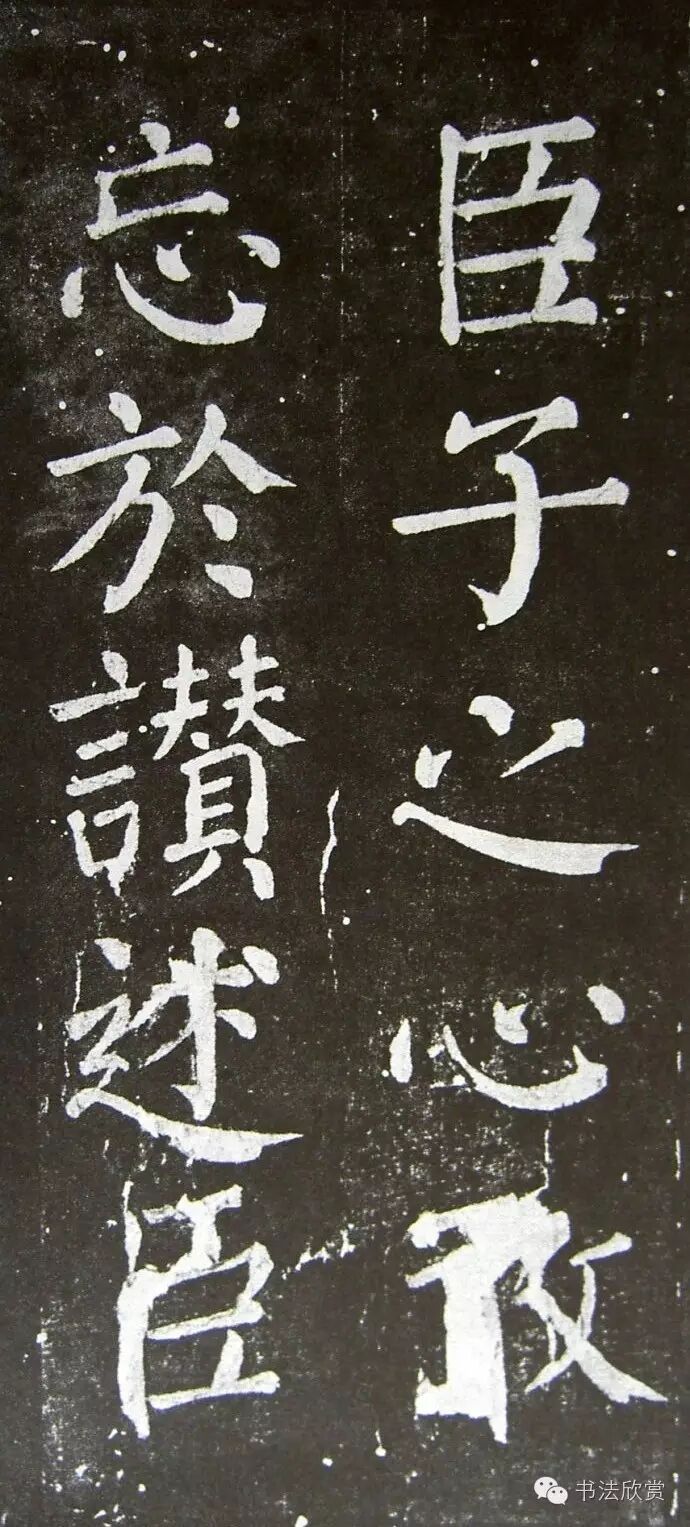 臣子之心敢
忘於讃述臣
书法欣赏